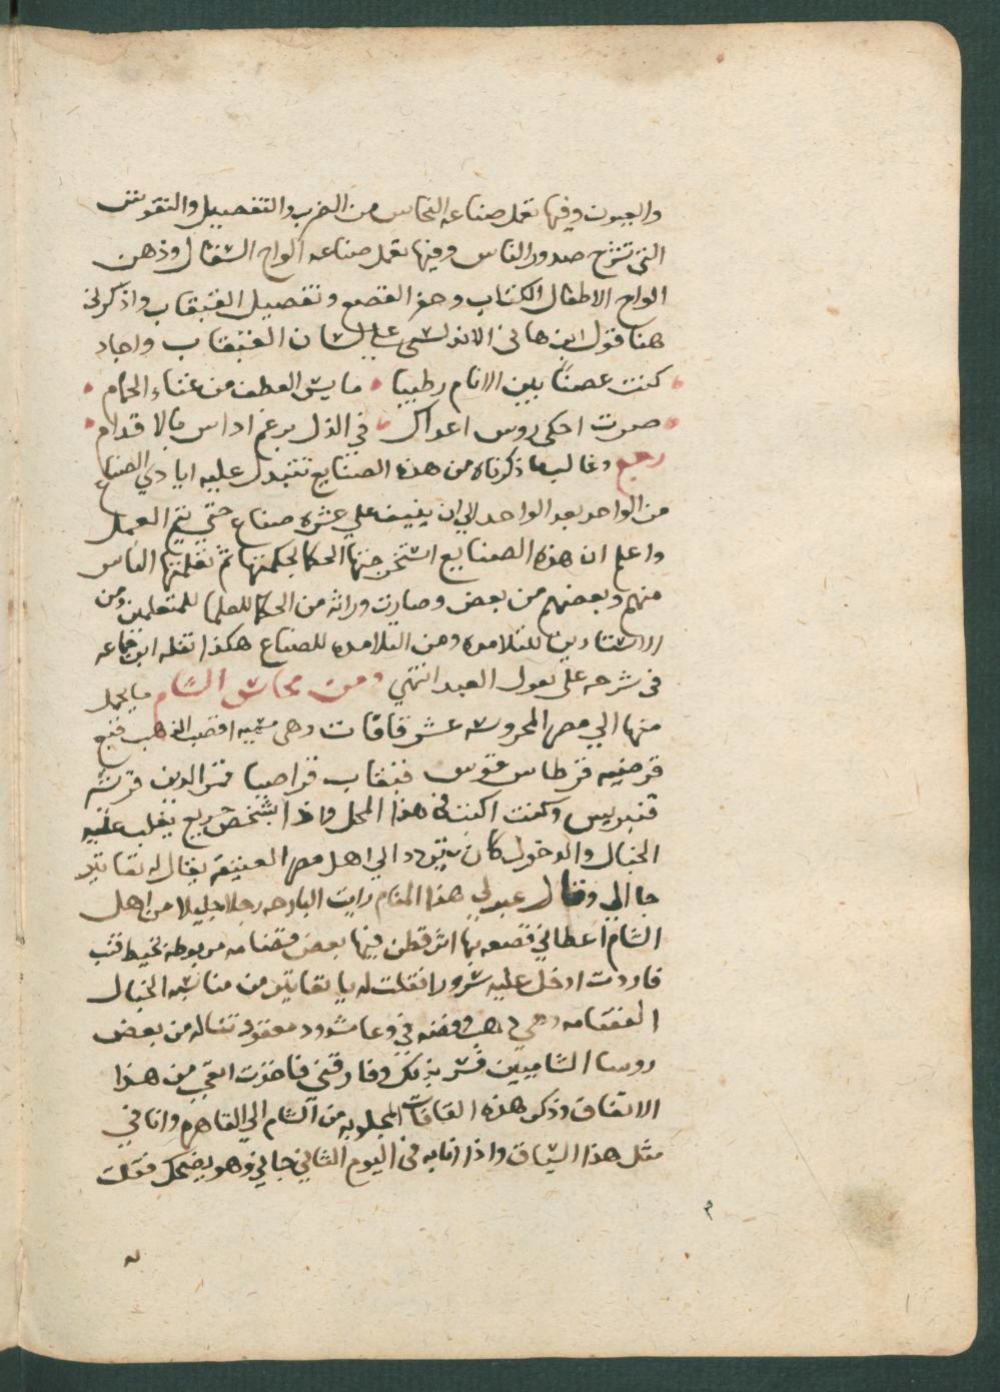 والعيون وفيها تعمل صناعه النحاس من الضرب والتفصيل والنقوش
التي تشرح صدور الناس وفيها تعمل صناعه الواح الشقال وذهن
الواح الاطفال الكتاب وحفر القصع وتفصيل القبقاب واذكرني
هنا قول ابن هاني الاندلسي على لسان القبقاب واجاد
كنت غصنا بين الانام رطيبا مايس العطف من غناء الحمام
صرت احكي روس اعداك في الذل برغم اداس بالاقدام
رجع وغالب ما ذكرناه من هذه الصنايع تتبدل عليه ايادي الصناع
من الواحد بعد الواحد الي ان ينيف علي عشره صناع حتي يتم العمل
واعلم ان هذه الصنايع استخرجتها الحكما بحكمتها ثم تعلمتها الناس
منهم وبعضهم من بعض وصارت وراثة من الحكما للعلما للمتعلمين ومن
الاستادين للتلامده ومن التلامده للصناع هكذا نقله ابن جماعه
في شرحه على بقول العبد انتهي ومن محاسن الشام ما يحمل
منها الي مصر المحروسه عشر قافات وهي قصب الذهب قبع
قرضيه قرطاس قوس قبقاب قراصيا قمر الدين قريشه
قنبريس وكنت اكتب في هذا المحل واذا بشخص يغلب عليه
الخبال والدخول كان يتردد الي اهل مصر العتيقه يقال له
جا الي وقال عبر لي هذا المنام رايت البارحه رجلا جليلا من اهل
الشام اعطاني قصعه بها قطن فيها بعض قضامه مربوطه بخيط قنب
فاردت ادخل عليه سرورا فقلت له يا من مناسبه الخيال
القضامه دهب وفضه في وعا مشدود معقود تناله من بعض
روسا الشاميين فسر بذلك وفارقني فاخذت اتعجب من هذا
الاتفاق وذكر هذه القافات المجلوبه من الشام الي القاهره وانا في
مثل هذا السياق واذا انا به في اليوم الثاني جاني وهو يضحك فقلت